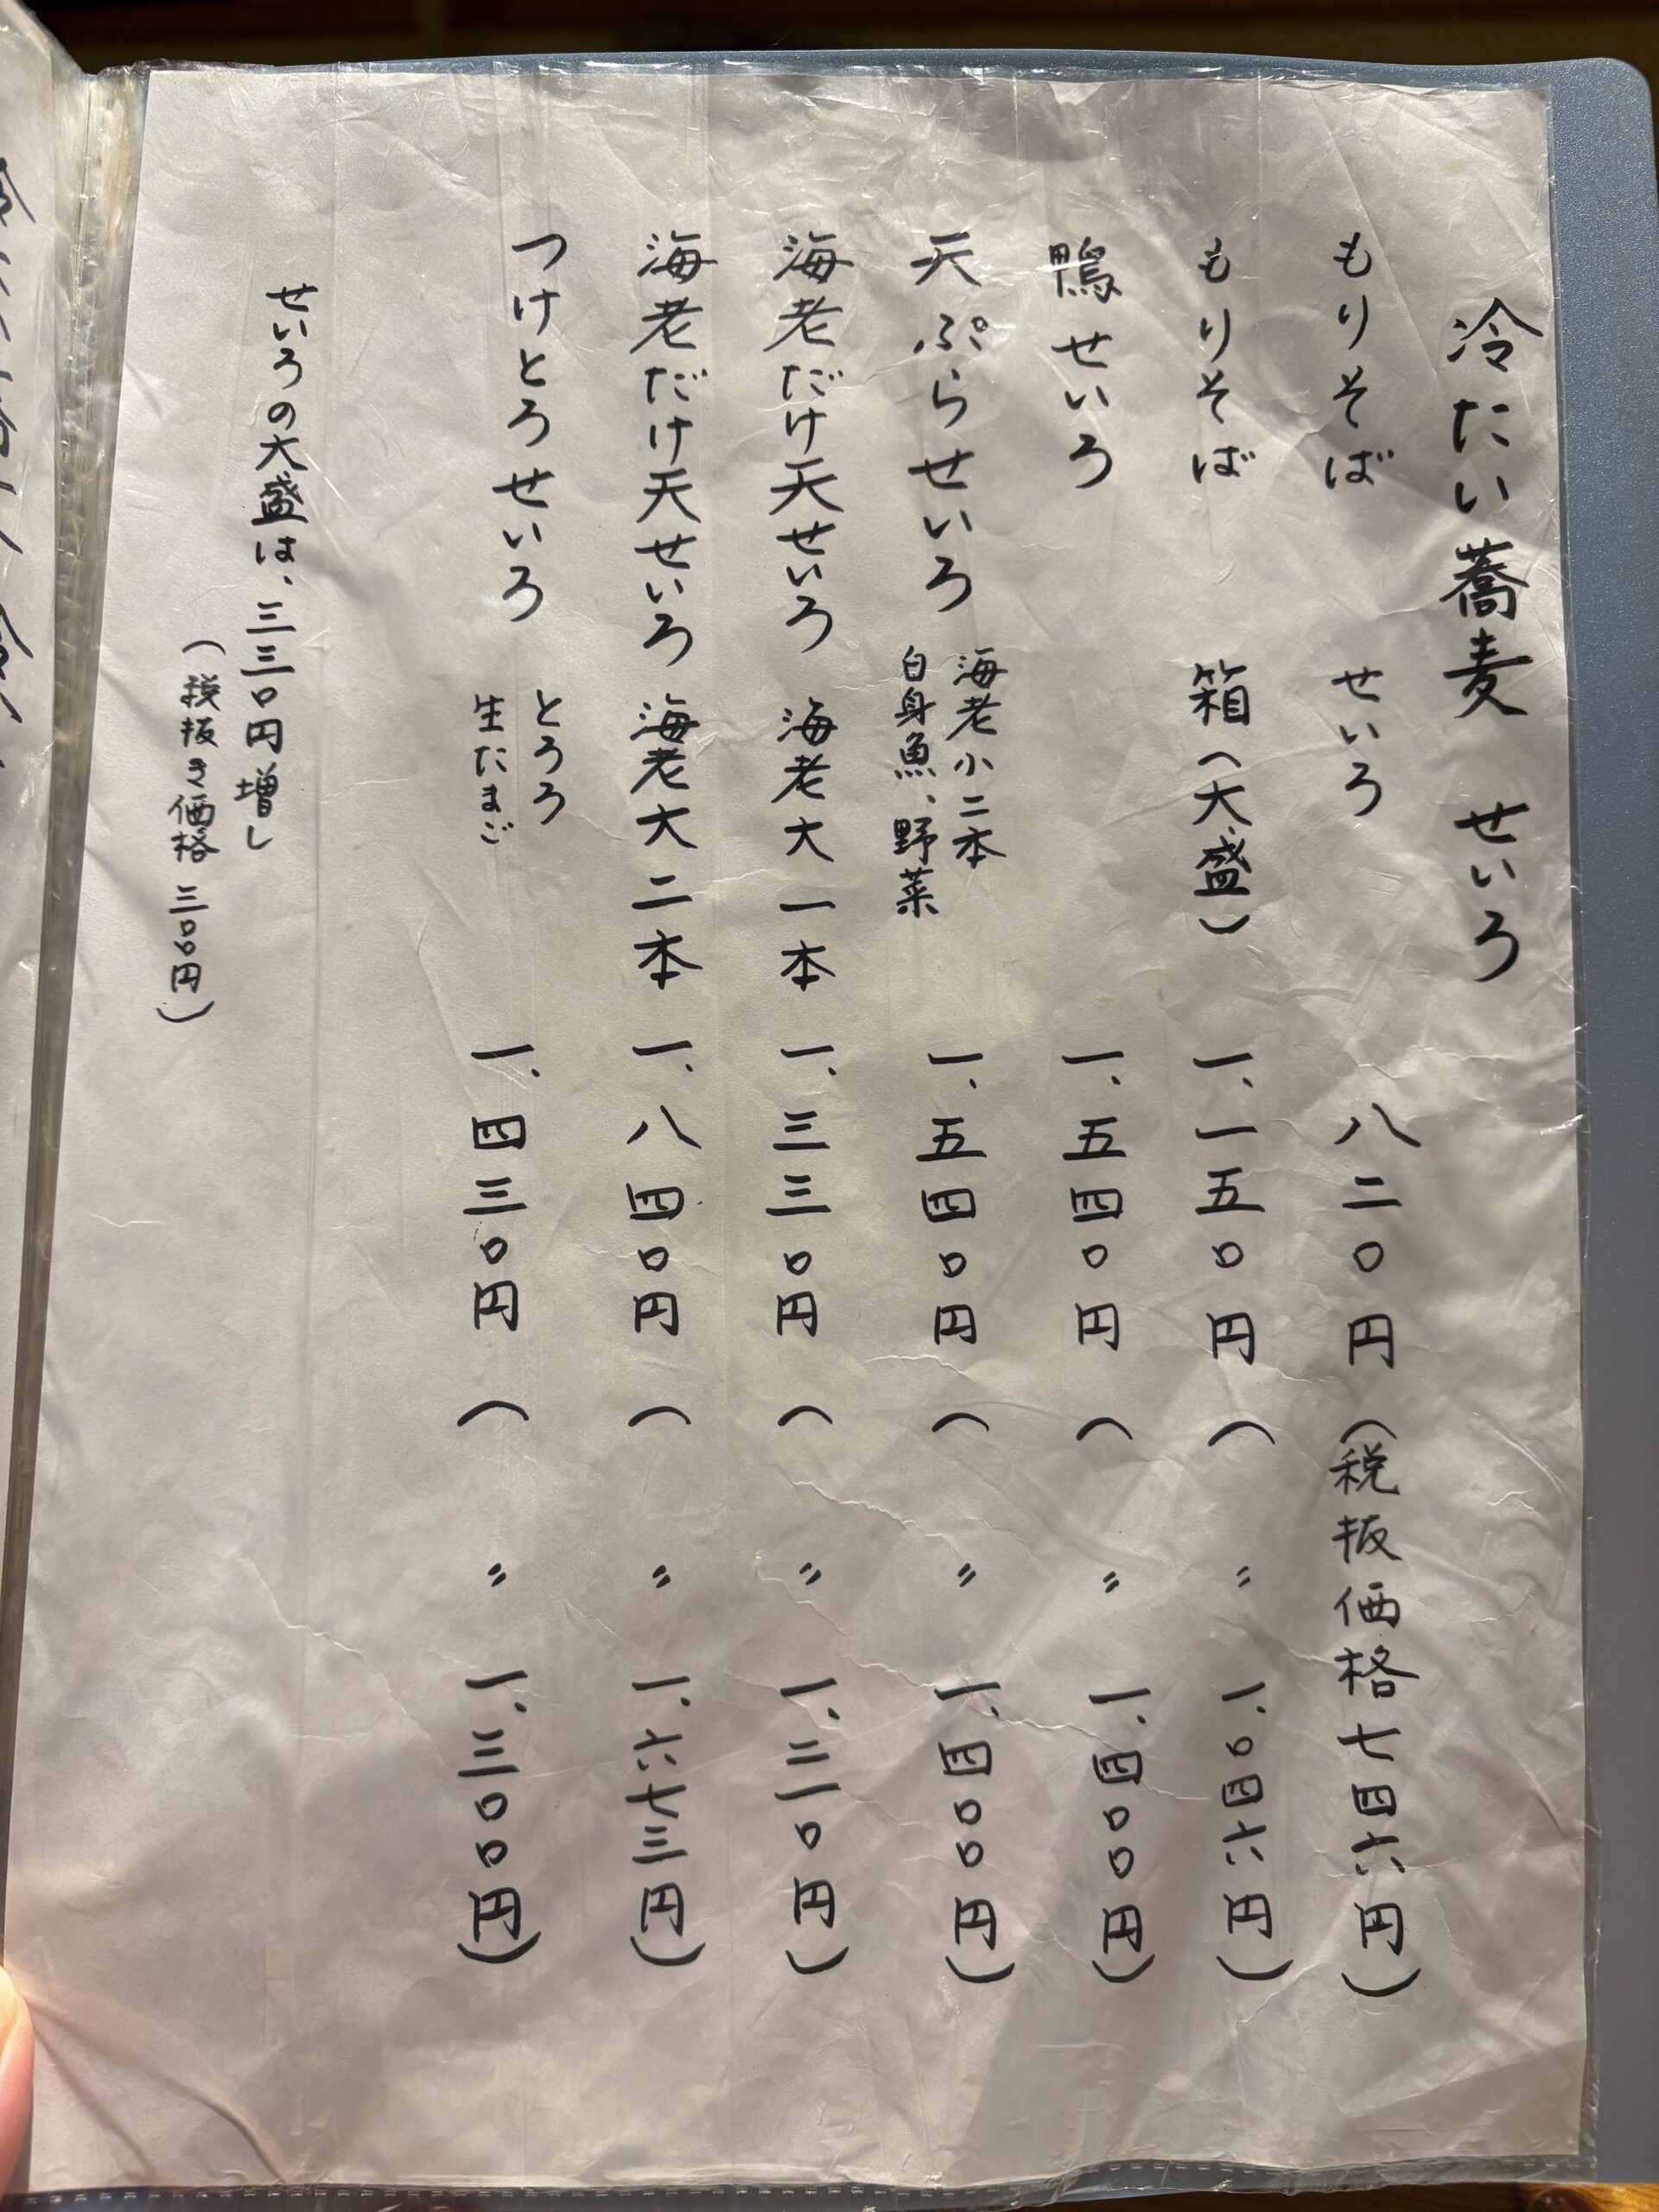 冷たい蕎麦 せいろ
もりそば せいろ 八二〇円(税抜価格七四六円)
もりそば 箱(大盛) 一、一五〇円( 〃 一、〇四六円)
鴨せいろ 一、五四〇円( 〃 一、四〇〇円)
天ぷらせいろ 海老小二本
白身魚、野菜 一、五四〇円( 〃 一、四〇〇円)
海老だけ天せいろ 海老大一本 一、三三〇円( 〃 一、二一〇円)
海老だけ天せいろ 海老大二本 一、八四〇円( 〃 一、六七三円)
つけとろせいろ とろろ
生たまご 一、四三〇円( 〃 一、三〇〇円)
せいろの大盛は、三三〇円増し
(税抜き価格 三〇〇円)